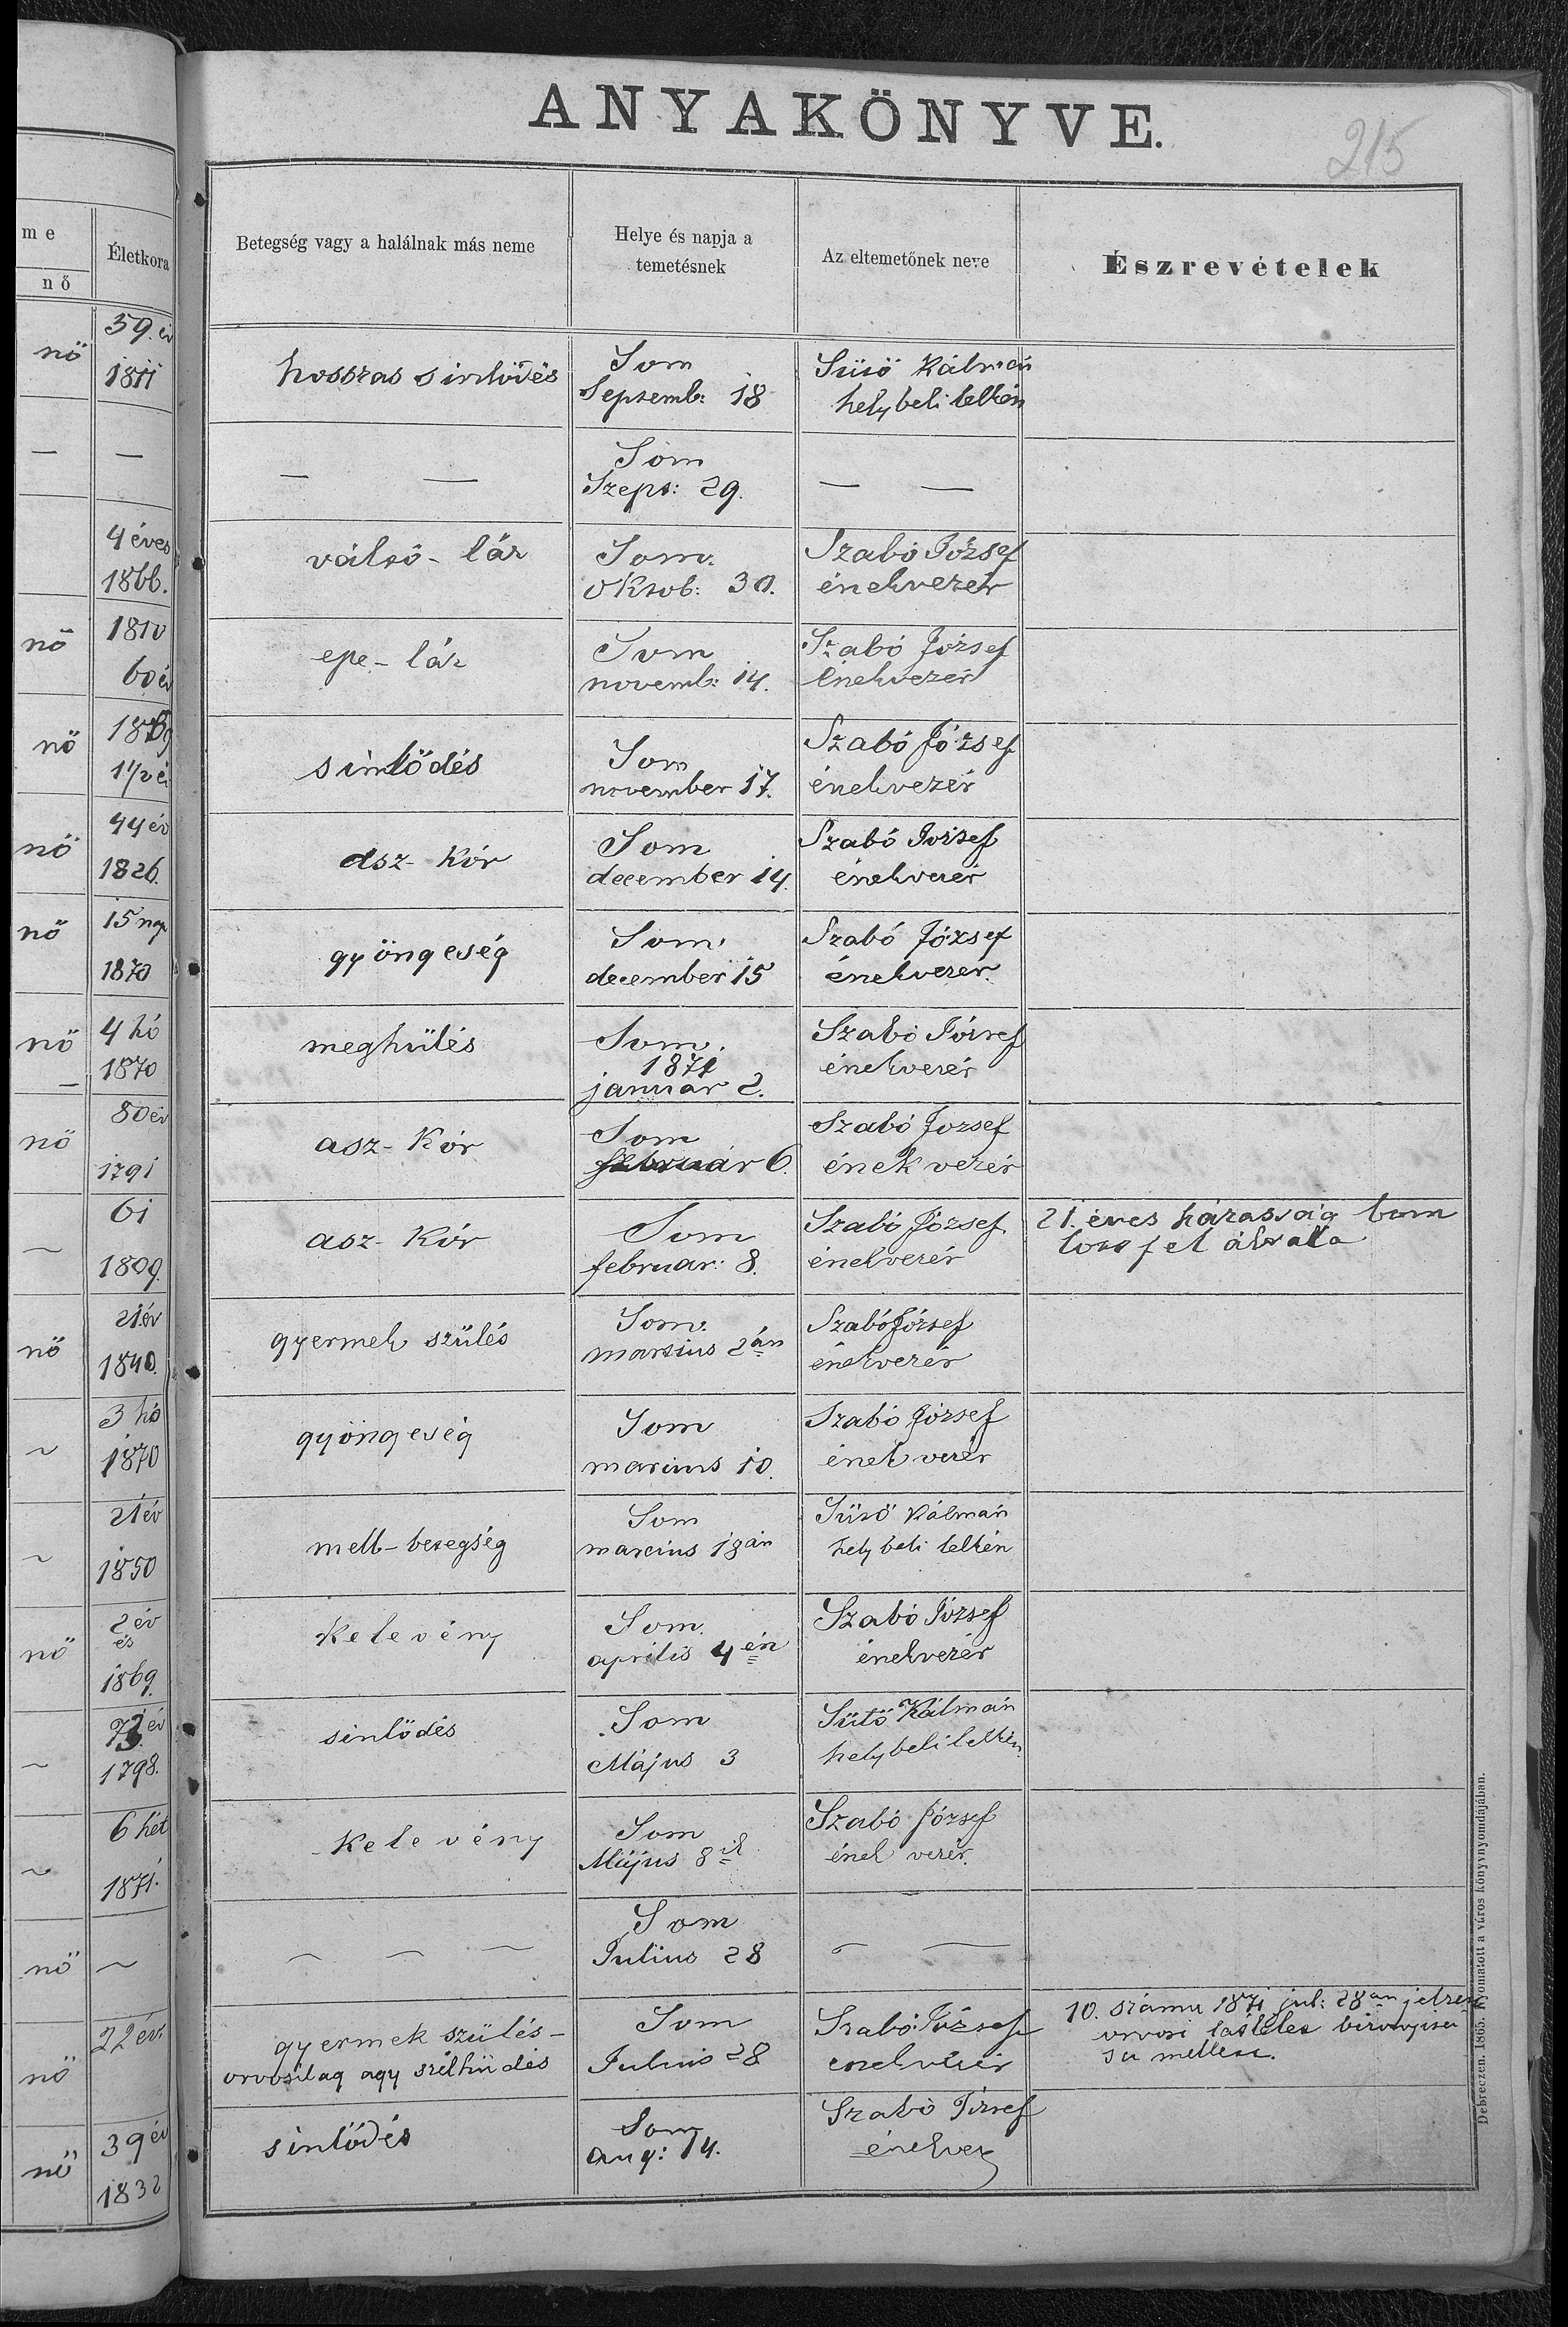 ANYAKÖNYVE.
215
me
nő
Életkora
Betegség vagy a halálnak más neme
Helye és napja a
temetésnek
Az eltemetőnek neve
Észrevételek
nö
59. év
1811
hosszas sinlödés
Som
Septemb: 18
Sütö Kálmán
helybeli lelkén
— —
— —
Som
Szept: 29.
— —
4 éves
1866.
váltó-láz
Som.
Oktob: 30.
Szabó József
énekvezér
nö
1810
60 év
epe-láz
Som
novemb: 14.
Szabó József
Énekvezér
nö
sinlödés
Som
november 17.
Szabó József
énekvezér
nö
44 év
1826.
asz-kór
Som
december 14.
Szabó József
énekvezér
nö
15 nap
1870
gyöngeség
Som.
december 15
Szabó József
énekvezér
nö
4 hó
1870
meghülés
Som.
1871
január 2.
Szabó József
énekvezér
nö
80 év
1791
asz-Kór
Som
február 6.
Szabó József
ének vezér
~
61
1809.
asz-Kór
Som
februar: 8.
Szabó József
énekvezér
21. éves házasság bom
lott fel általa
nö
21 év
gyermek szülés
Som.
martius 2án
Szabó József
énekvezér
~
3 hó
1870
gyöngeség
Som
martius 10.
Szabó József
ének vezér
~
21 év
1850
mell-betegség
Som
martius 18án
Sütö Kálmán
helybeli lelkén
nö
2 év
és
1869.
Kelevény
Som.
április 4én
Szabó József
énekvezér
~
73. év
1798.
sinlödés
Som
Május 3
Sütö Kálmán
helybeli lelkén
~
6 hét
1871.
Kelevény
Som
Május 8
Szabó József
ének vezér.
nö ~
~ ~ ~
Som
Julius 28
~ ~
nö
22 év.
gyermek szülés-
orvosilag agy szélhüdés
Som
Julius 28
Szabó József
énekvezér
10. számu 1871 jul: 28án
orvosi látlelet
mellett.
nö
39 év
1832
sinlödés
Som
Aug: 14.
Szabó József
énekvez
Debreczen. 1865. Nyomatott a város könyvnyomdájában.